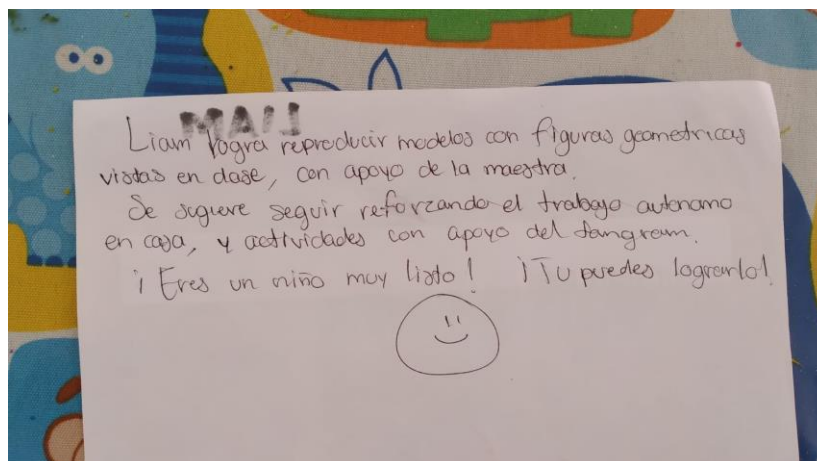 MAIL
Liam logra reproducir modelos con figuras geometricas
vistas en clase, con apoyo de la maestra.
Se sugiere seguir reforzando el trabajo autonomo
en casa, y actividades con apoyo del tangram.
¡Eres un niño muy listo! ¡Tu puedes lograrlo!